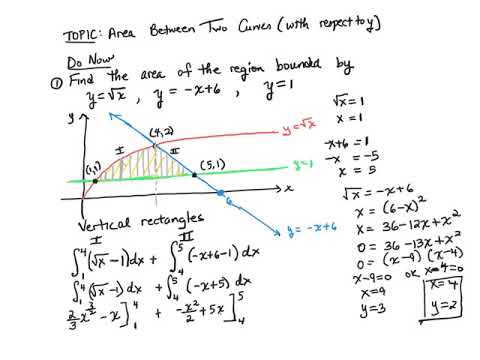 TOPIC: Area Between Two Curves (with respect to y)
Do Now
① Find the area of the region bounded by
y = √x , y = -x+6 , y = 1
√x = 1
x = 1
-x+6 = 1
-x = -5
x = 5
√x = -x+6
x = (6-x)²
x = 36-12x+x²
0 = 36-13x+x²
0 = (x-9)(x-4)
x-9=0 or x-4=0
x=9 x=4
y=3 y=2
y
(4,2)
y=√x
I II
(1,1) (5,1)
y=1
x
6
y = -x+6
Vertical rectangles
I II
∫₁⁴ (√x - 1) dx + ∫₄⁵ (-x+6-1) dx
∫₁⁴ (√x - 1) dx + ∫₄⁵ (-x+5) dx
2/3 x^(3/2) - x]₁⁴ + -x²/2 + 5x]₄⁵